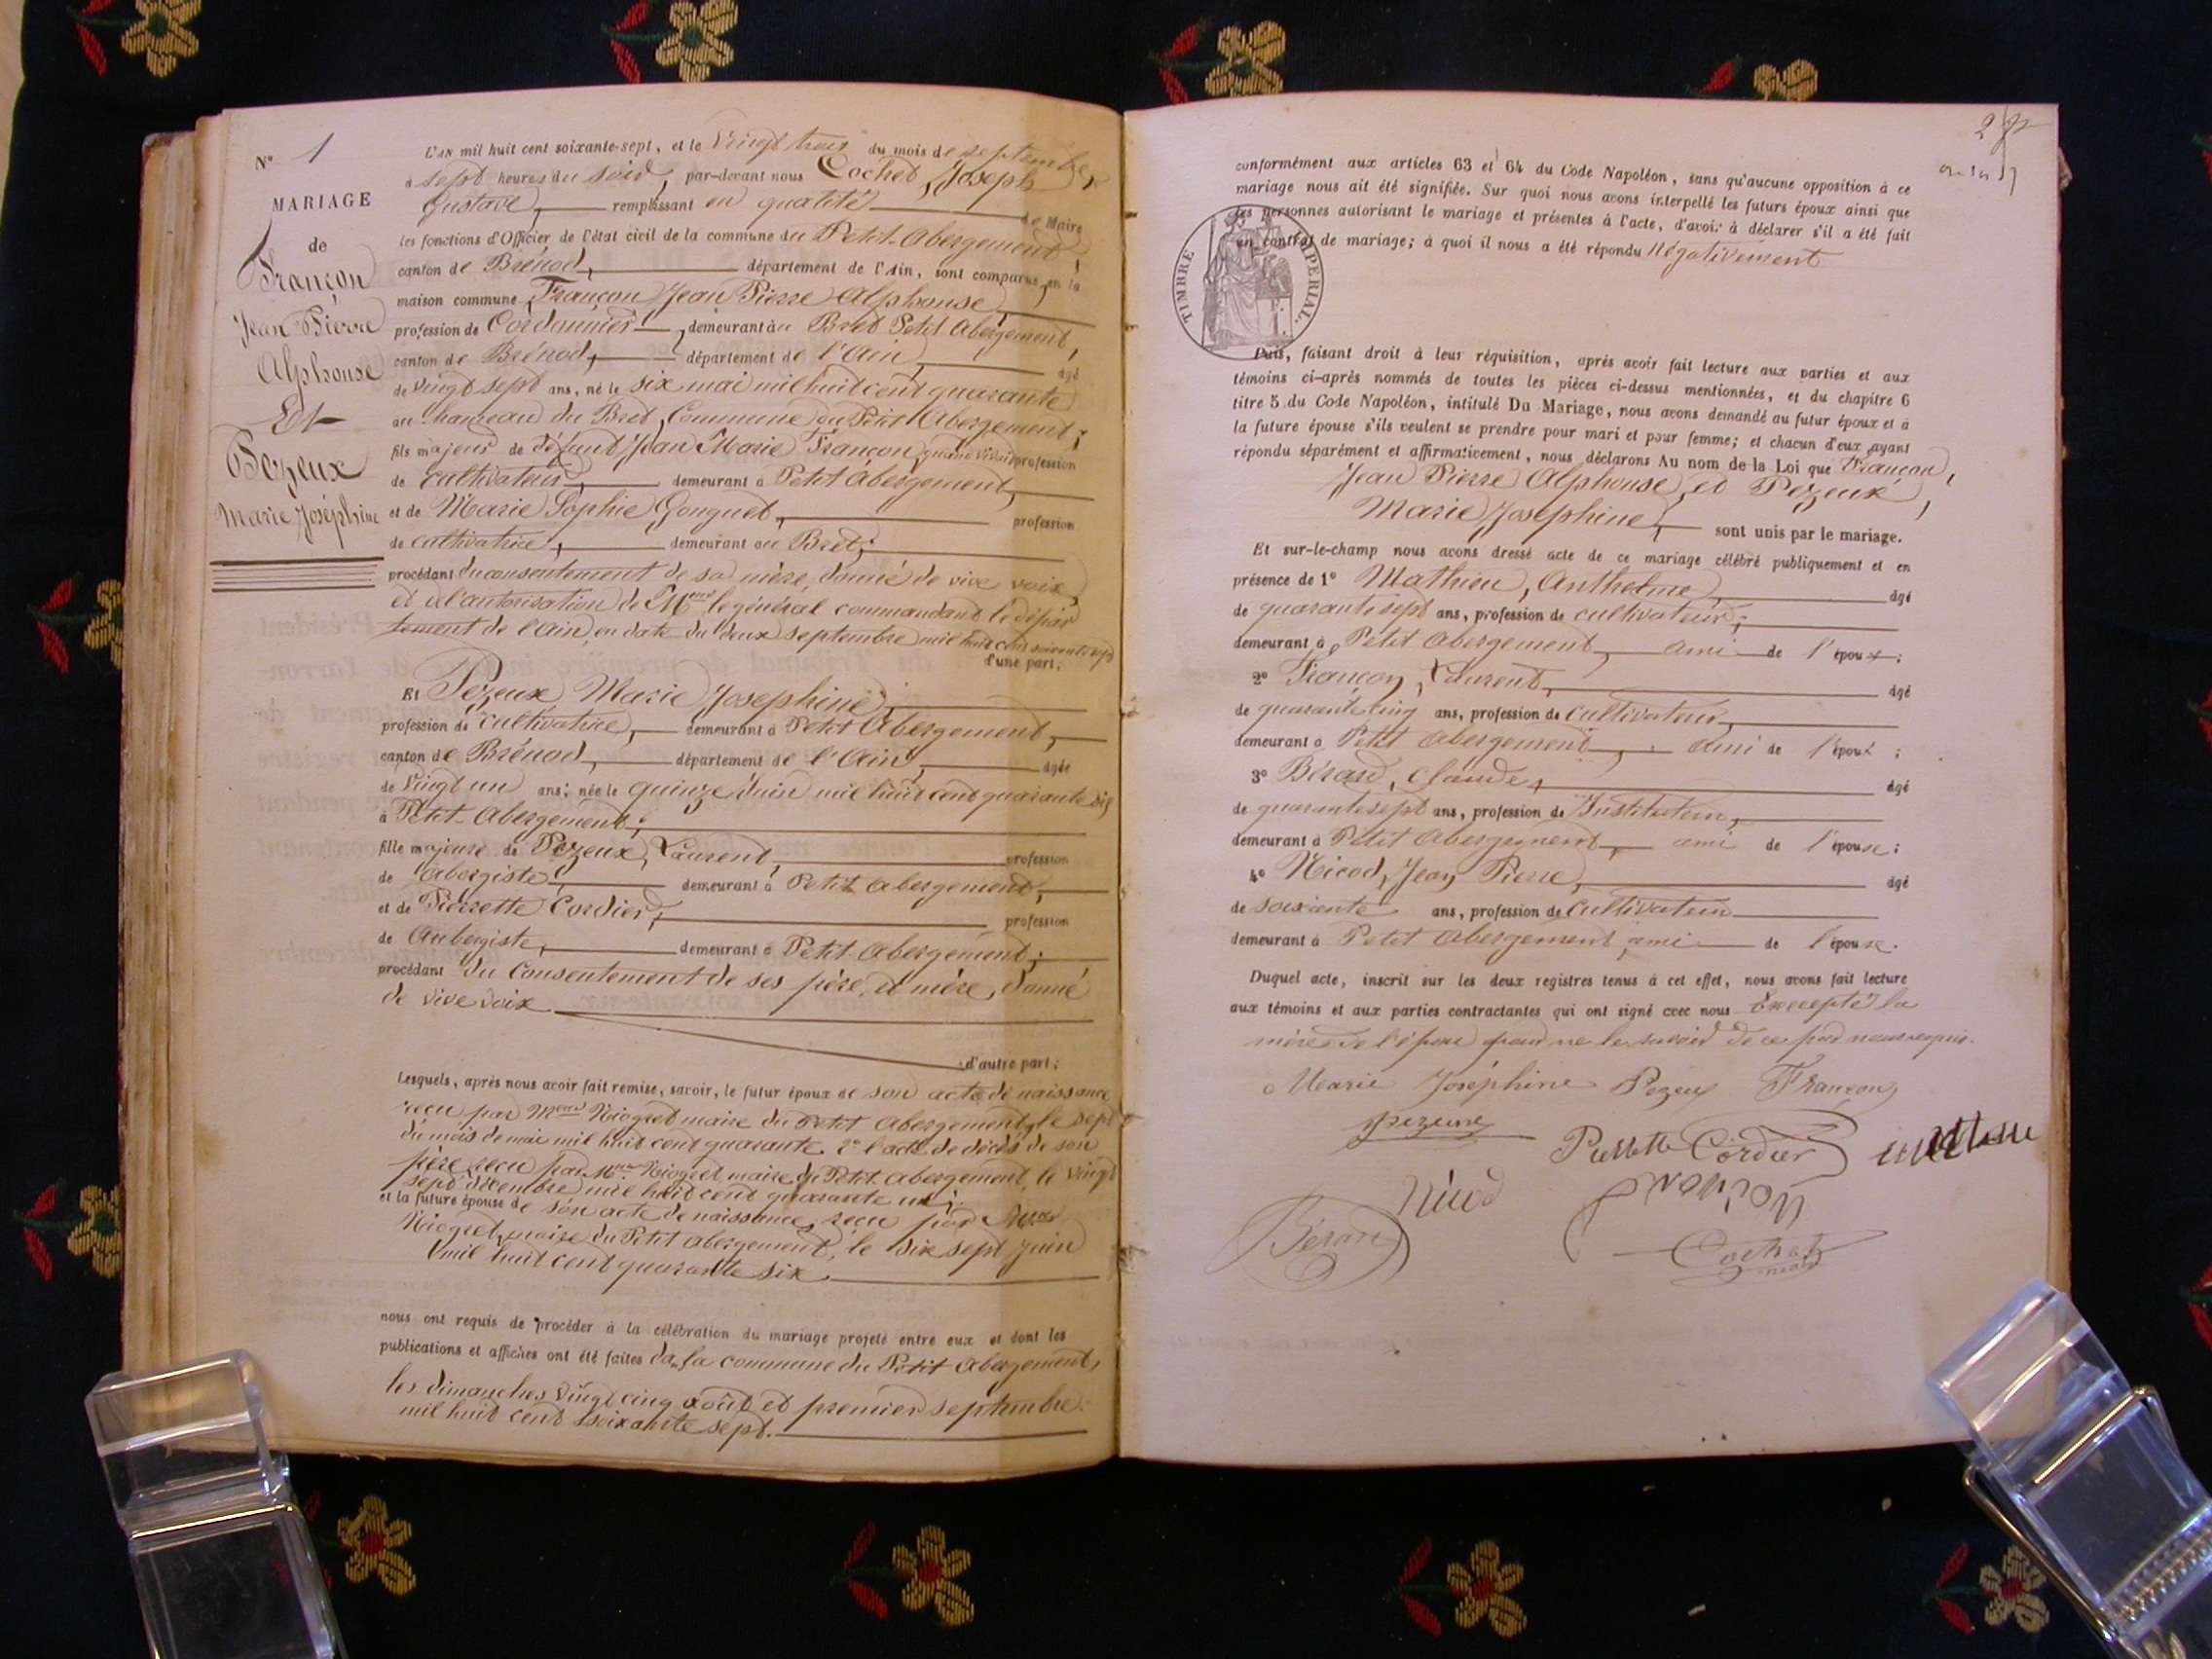 N° 1
MARIAGE
de
Françon
Jean Pierre
Alphonse
Et
Pezeux
Marie Joséphine
L'AN mil huit cent soixante-sept, et le vingt trois du mois de septembre,
à sept heures du soir, par-devant nous Cochet, Joseph
Gustave, remplissant en qualité de Maire
les fonctions d'Officier de l'état civil de la commune du Petit-Abergement,
canton de Brénod, département de l'Ain, sont comparus en la
maison commune, Françon Jean Pierre Alphonse,
profession de Cordonnier, demeurant au Bret Petit Abergement,
canton de Brénod, département de l'Ain, âgé
de vingt sept ans, né le six mai mil huit cent quarante
au hameau du Bret, Commune du Petit Abergement;
fils majeur de défunt Jean Marie Françon, quand vivait profession
de cultivateur, demeurant à Petit Abergement,
et de Marie Sophie Gonguet, profession
de cultivatrice, demeurant au Bret;
procédant du consentement de sa mère, donné de vive voix,
et de l'autorisation de Mr le général commandant le dépar
tement de l'Ain, en date du deux septembre mil huit cent soixante sept
d'une part;
Et Pezeux Marie Josephine,
profession de cultivatrice, demeurant à Petit Abergement,
canton de Brénod, département de l'Ain, âgée
de vingt un ans; née le quinze Juin mil huit cent quarante six
à Petit-Abergement;
fille majeure de Pezeux, Laurent, profession
de Abergiste, demeurant à Petit Abergement,
et de Pierrette Cordier, profession
de Aubergiste, demeurant à Petit-Abergement;
procédant du consentement de ses père et mère, donné
de vive voix
d'autre part;
Lesquels, après nous avoir fait remise, savoir, le futur époux de son acte de naissance
reçu par Niogret maire du Petit Abergement, le sept
du mois de mai mil huit cent quarante 2° l'acte de décès de son
père reçu par Niogret maire du Petit Abergement, le vingt
sept décembre mil huit cent quarante un;
et la future épouse de son acte de naissance, reçu par
Niogret, maire du Petit Abergement, le six sept Juin
mil huit cent quarante six.
nous ont requis de procéder à la célébration du mariage projeté entre eux et dont les
publications et affiches ont été faites dans la commune du Petit Abergement,
les dimanches vingt cinq août et premier septembre
mil huit cent soixante sept.
2
conformément aux articles 63 et 64 du Code Napoléon, sans qu'aucune opposition à ce
mariage nous ait été signifiée. Sur quoi nous avons interpellé les futurs époux ainsi que
les personnes autorisant le mariage et présentes à l'acte, d'avoir à déclarer s'il a été fait
un contrat de mariage; à quoi il nous a été répondu négativement
TIMBRE IMPERIAL.
Puis, faisant droit à leur réquisition, après avoir fait lecture aux parties et aux
témoins ci-après nommés de toutes les pièces ci-dessus mentionnées, et du chapitre 6
titre 5 du Code Napoléon, intitulé Du Mariage, nous avons demandé au futur époux et à
la future épouse s'ils veulent se prendre pour mari et pour femme; et chacun d'eux ayant
répondu séparément et affirmativement, nous déclarons Au nom de la Loi que Françon,
Jean Pierre Alphonse, et Pezeux,
Marie Josephine, sont unis par le mariage.
Et sur-le-champ nous avons dressé acte de ce mariage célébré publiquement et en
présence de 1° Mathieu, Anthelme, âgé
de quarante sept ans, profession de cultivateur,
demeurant à Petit Abergement, ami de l'époux;
2° Françon, Laurent, âgé
de quarante cinq ans, profession de cultivateur,
demeurant à Petit Abergement, ami de l'époux;
3° Bérard, Claude, âgé
de quarante sept ans, profession de Instituteur,
demeurant à Petit Abergement, ami de l'épouse;
4° Nicod, Jean Pierre, âgé
de soixante ans, profession de Cultivateur
demeurant à Petit Abergement, ami de l'épouse.
Duquel acte, inscrit sur les deux registres tenus à cet effet, nous avons fait lecture
aux témoins et aux parties contractantes qui ont signé avec nous Excepté la
mère de l'époux pour ne le savoir de ce par nous requis.
Marie Joséphine Pezeux Françon
pezeux
Cordier
Nicod françon
Bérard
Cochet
maire